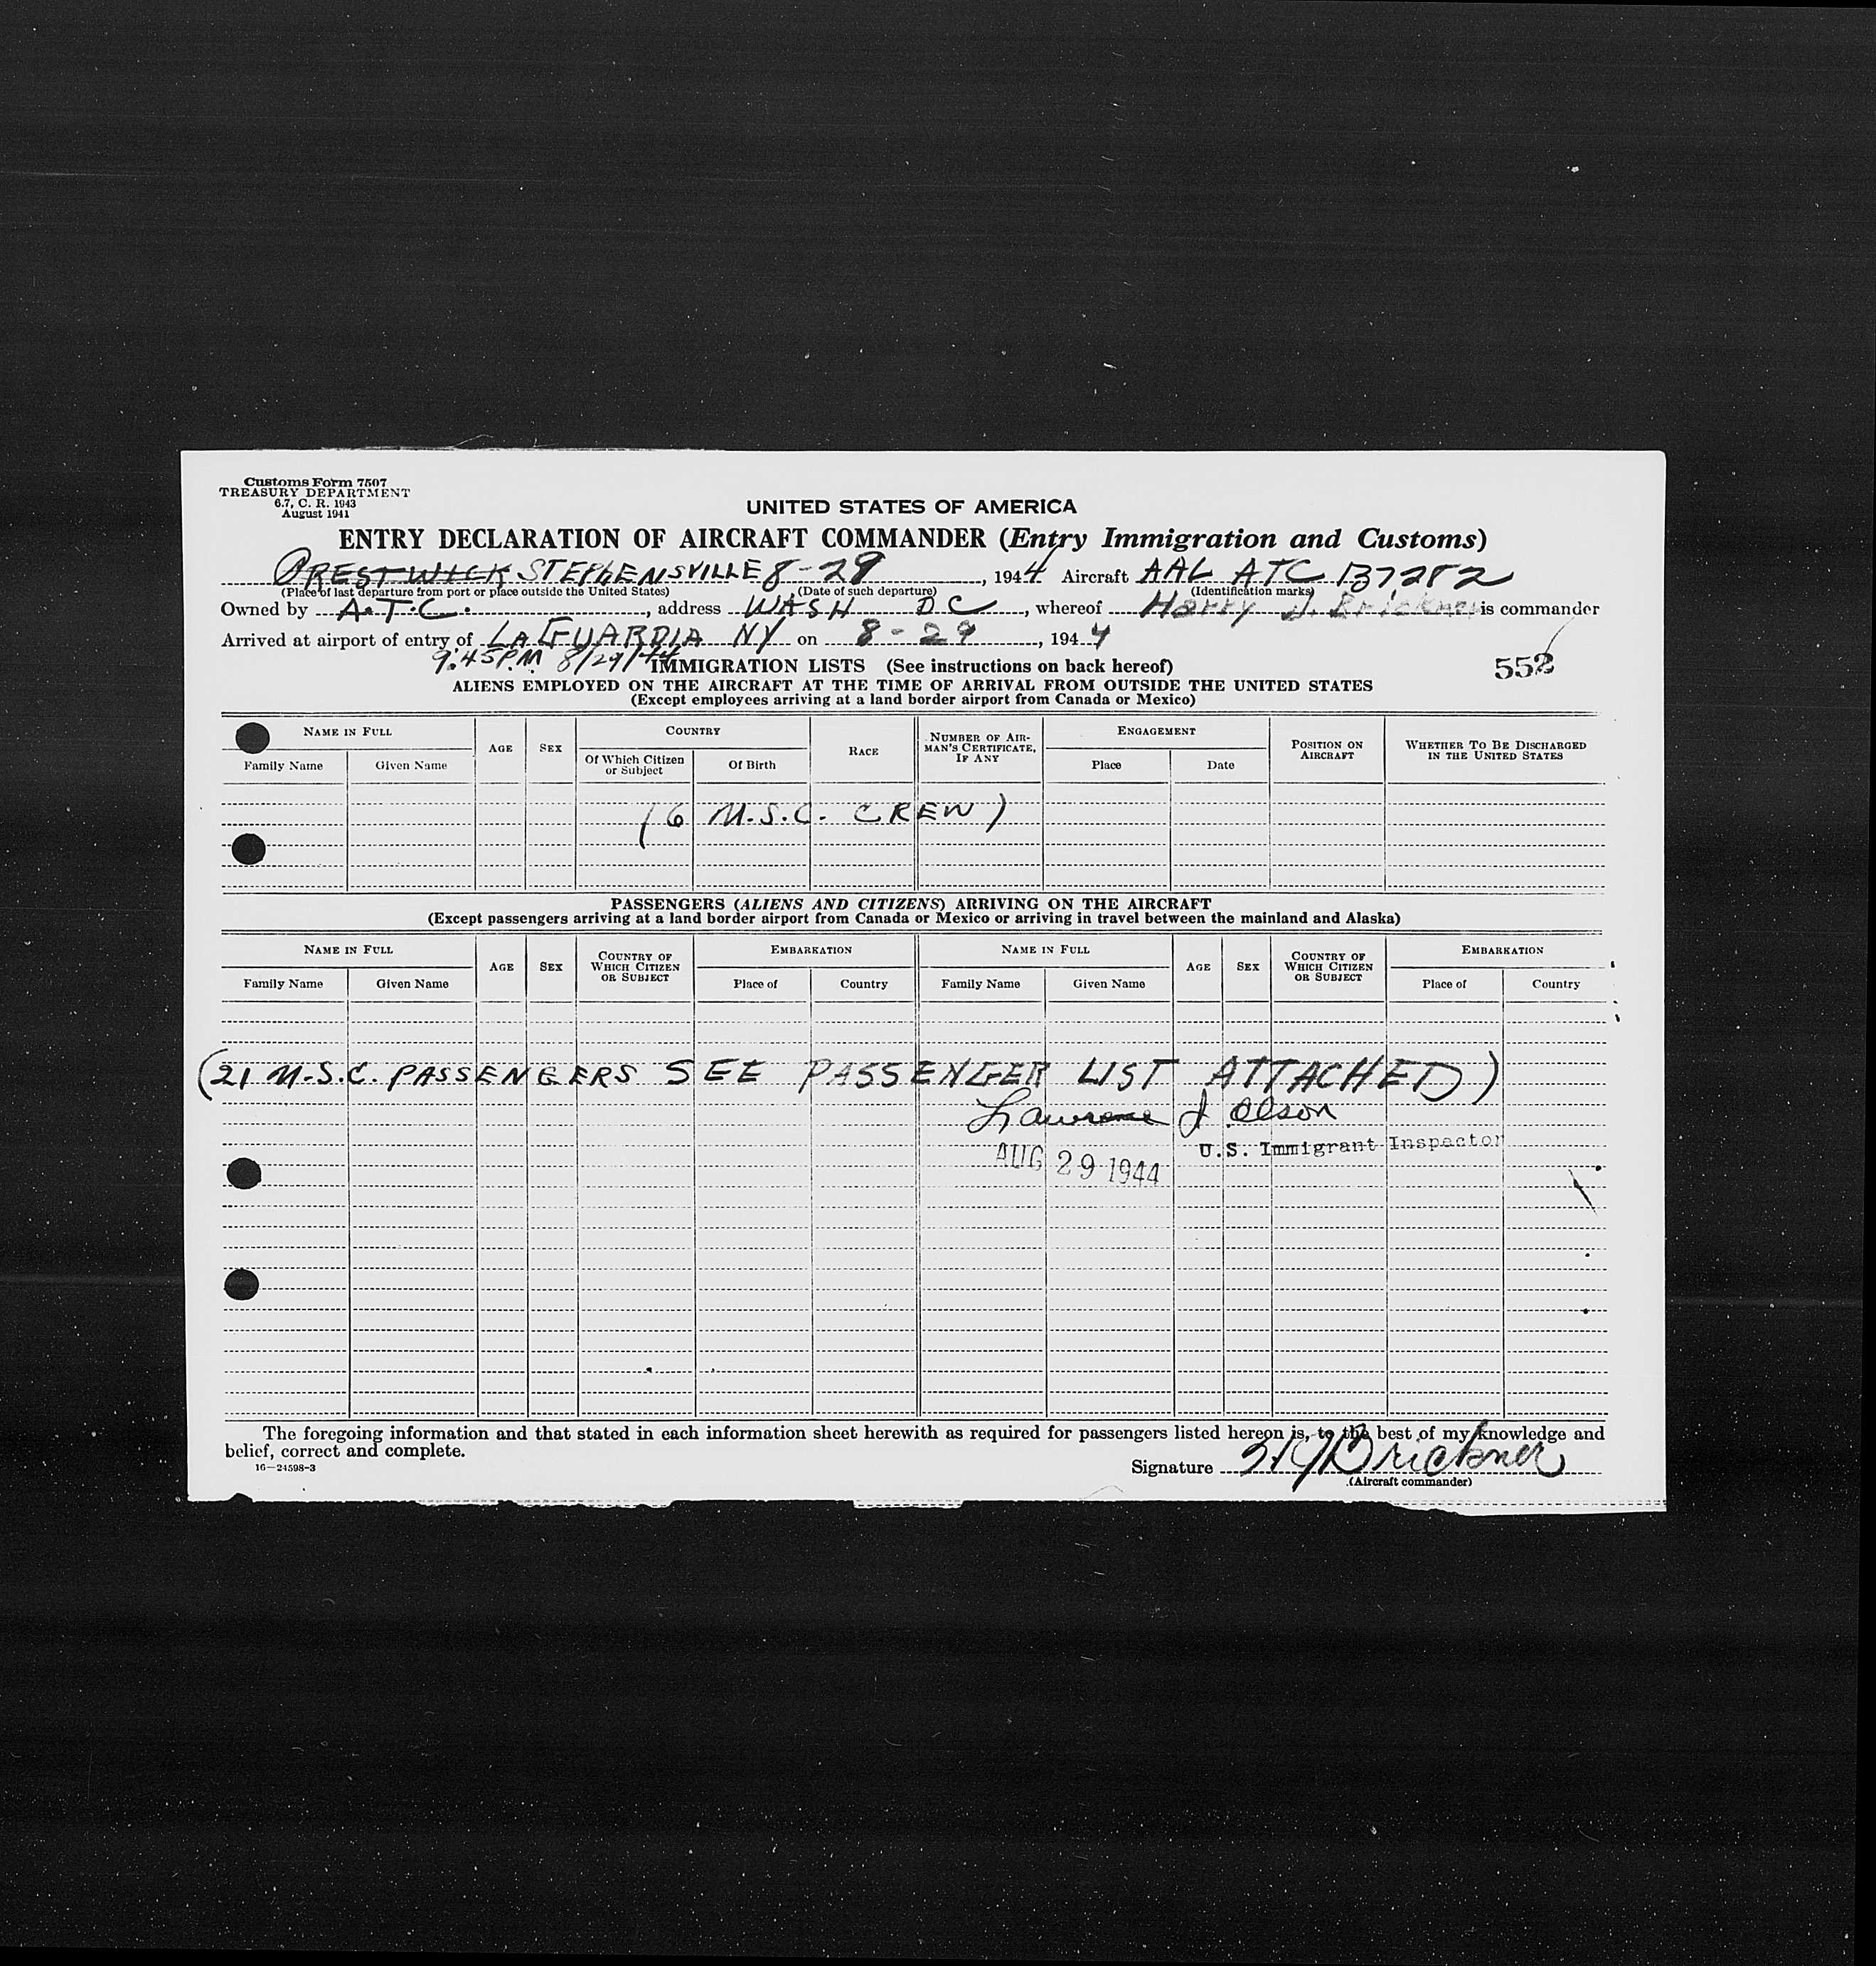 Customs Form 7507
TREASURY DEPARTMENT
6.7, C. R. 1943
August 1941
UNITED STATES OF AMERICA
ENTRY DECLARATION OF AIRCRAFT COMMANDER (Entry Immigration and Customs)
PRESTWICK STEPHENSVILLE 8-29, 1944 Aircraft AAL ATC 137282
(Place of last departure from port or place outside the United States) (Date of such departure) (Identification marks)
Owned by A.T.C., address WASH DC, whereof Harry J. Brickner is commander
Arrived at airport of entry of LAGUARDIA NY on 8-29, 1944
9:45 P.M. 8/29/44 IMMIGRATION LISTS (See instructions on back hereof) 552
ALIENS EMPLOYED ON THE AIRCRAFT AT THE TIME OF ARRIVAL FROM OUTSIDE THE UNITED STATES
(Except employees arriving at a land border airport from Canada or Mexico)
NAME IN FULL AGE SEX COUNTRY RACE NUMBER OF AIRMAN'S CERTIFICATE, IF ANY ENGAGEMENT POSITION ON AIRCRAFT WHETHER TO BE DISCHARGED IN THE UNITED STATES
Family Name Given Name Of Which Citizen or Subject Of Birth Place Date
(6 M.S.C. CREW)
PASSENGERS (ALIENS AND CITIZENS) ARRIVING ON THE AIRCRAFT
(Except passengers arriving at a land border airport from Canada or Mexico or arriving in travel between the mainland and Alaska)
NAME IN FULL AGE SEX COUNTRY OF WHICH CITIZEN OR SUBJECT EMBARKATION NAME IN FULL AGE SEX COUNTRY OF WHICH CITIZEN OR SUBJECT EMBARKATION
Family Name Given Name Place of Country Family Name Given Name Place of Country
(21 M.S.C. PASSENGERS SEE PASSENGER LIST ATTACHED)
Lawrence J Olson
U.S. Immigrant Inspector
AUG 29 1944
The foregoing information and that stated in each information sheet herewith as required for passengers listed hereon is, to the best of my knowledge and
belief, correct and complete.
16—24598-3
Signature HJ Brickner
(Aircraft commander)